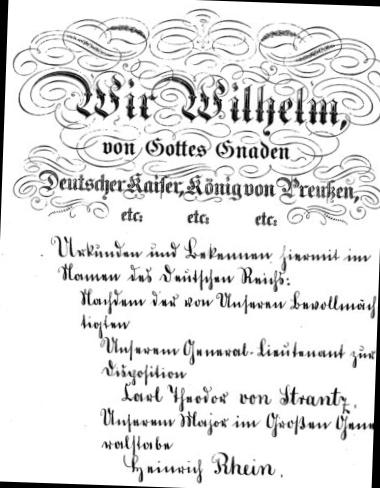 Wir Wilhelm,
von Gottes Gnaden
Deutscher Kaiser, König von Preußen,
etc: etc: etc:
Urkunden und Bekennen hiermit im
Namen des Deutschen Reichs:
Nachdem der von Unseren Bevollmäch
tigten
Unserem General-Lieutenant zur
Disposition
Carl Theodor von Strantz,
Unserem Major im Großen Gene
ralstabe
Heinrich Rhein,